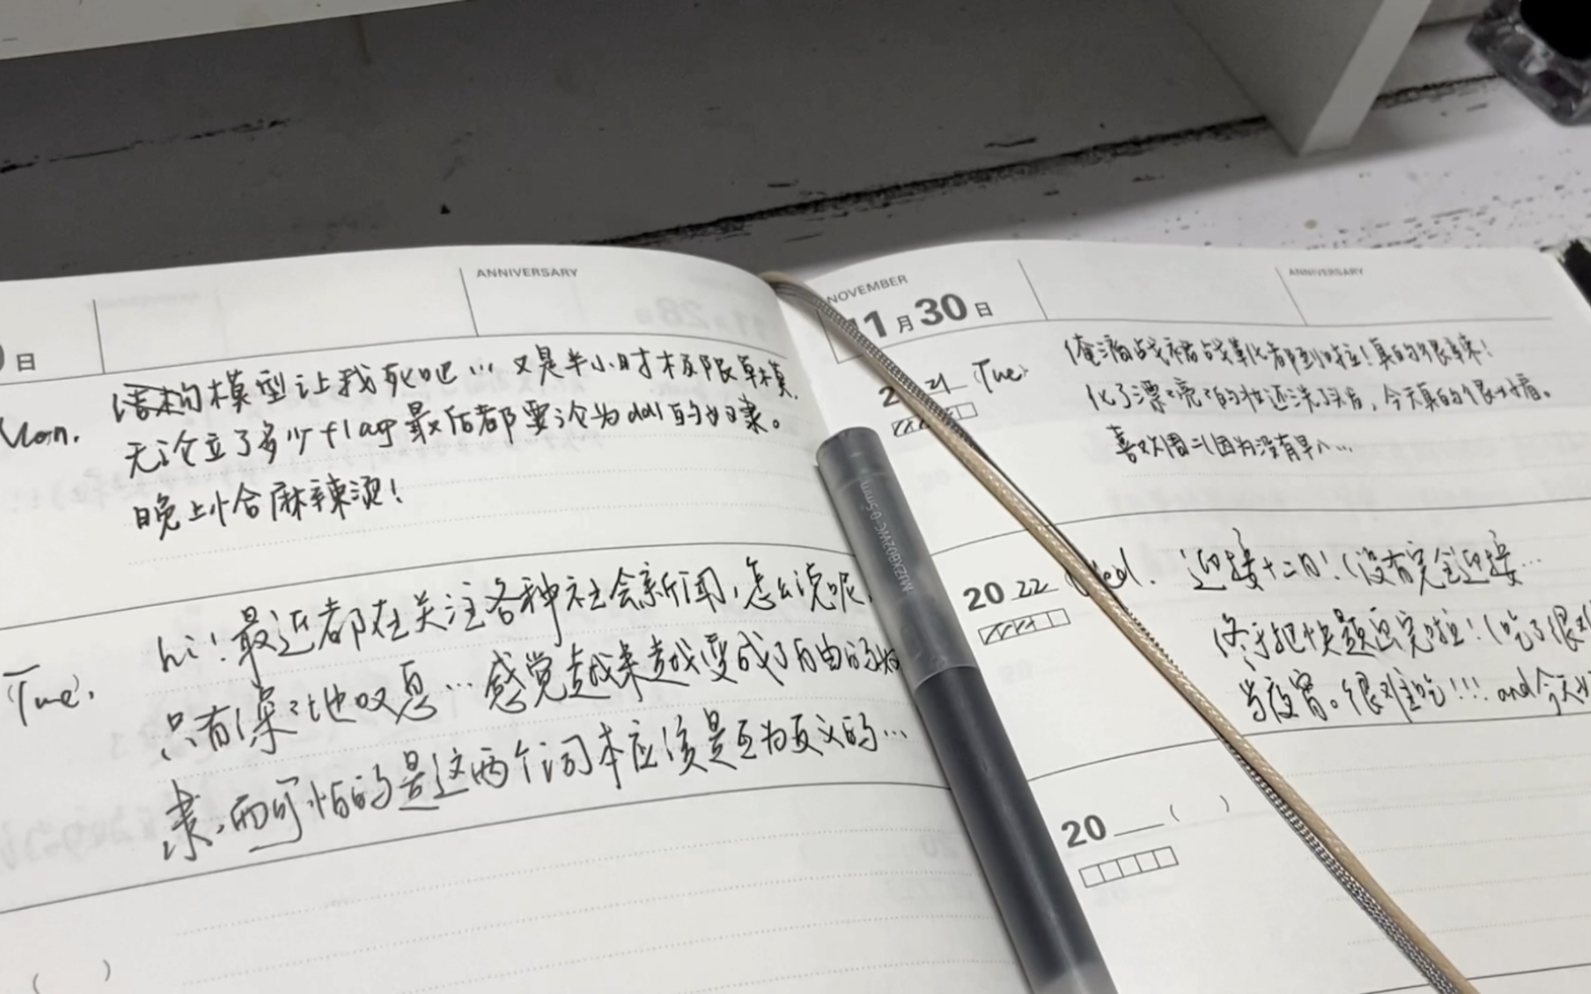 日
ANNIVERSARY
Mon.
结构模型让我死吧…又是半小时极限卓模.
无论立了多少flag最后都要沦为ddl的奴隶。
晚上恰麻辣烫!
Tue.
hi!最近都在关注各种社会新闻,怎么说呢,
只有深深地叹息…感觉越来越变成了自由的奴
隶,而可怕的是这两个词本应该是互为反义的…
( )
NOVEMBER
11月30日
ANNIVERSARY
2021 Tue
都到啦!真的很
化了漂漂亮亮的妆还洗了头,今天真的很好看。
喜欢周二(因为没有早八…
2022 Wed.
迎接十二月!(没有完全迎接…
终于把快题画完啦!(吃了很
当夜宵。很难吃!!! and今天
20 ( )
0.5mm